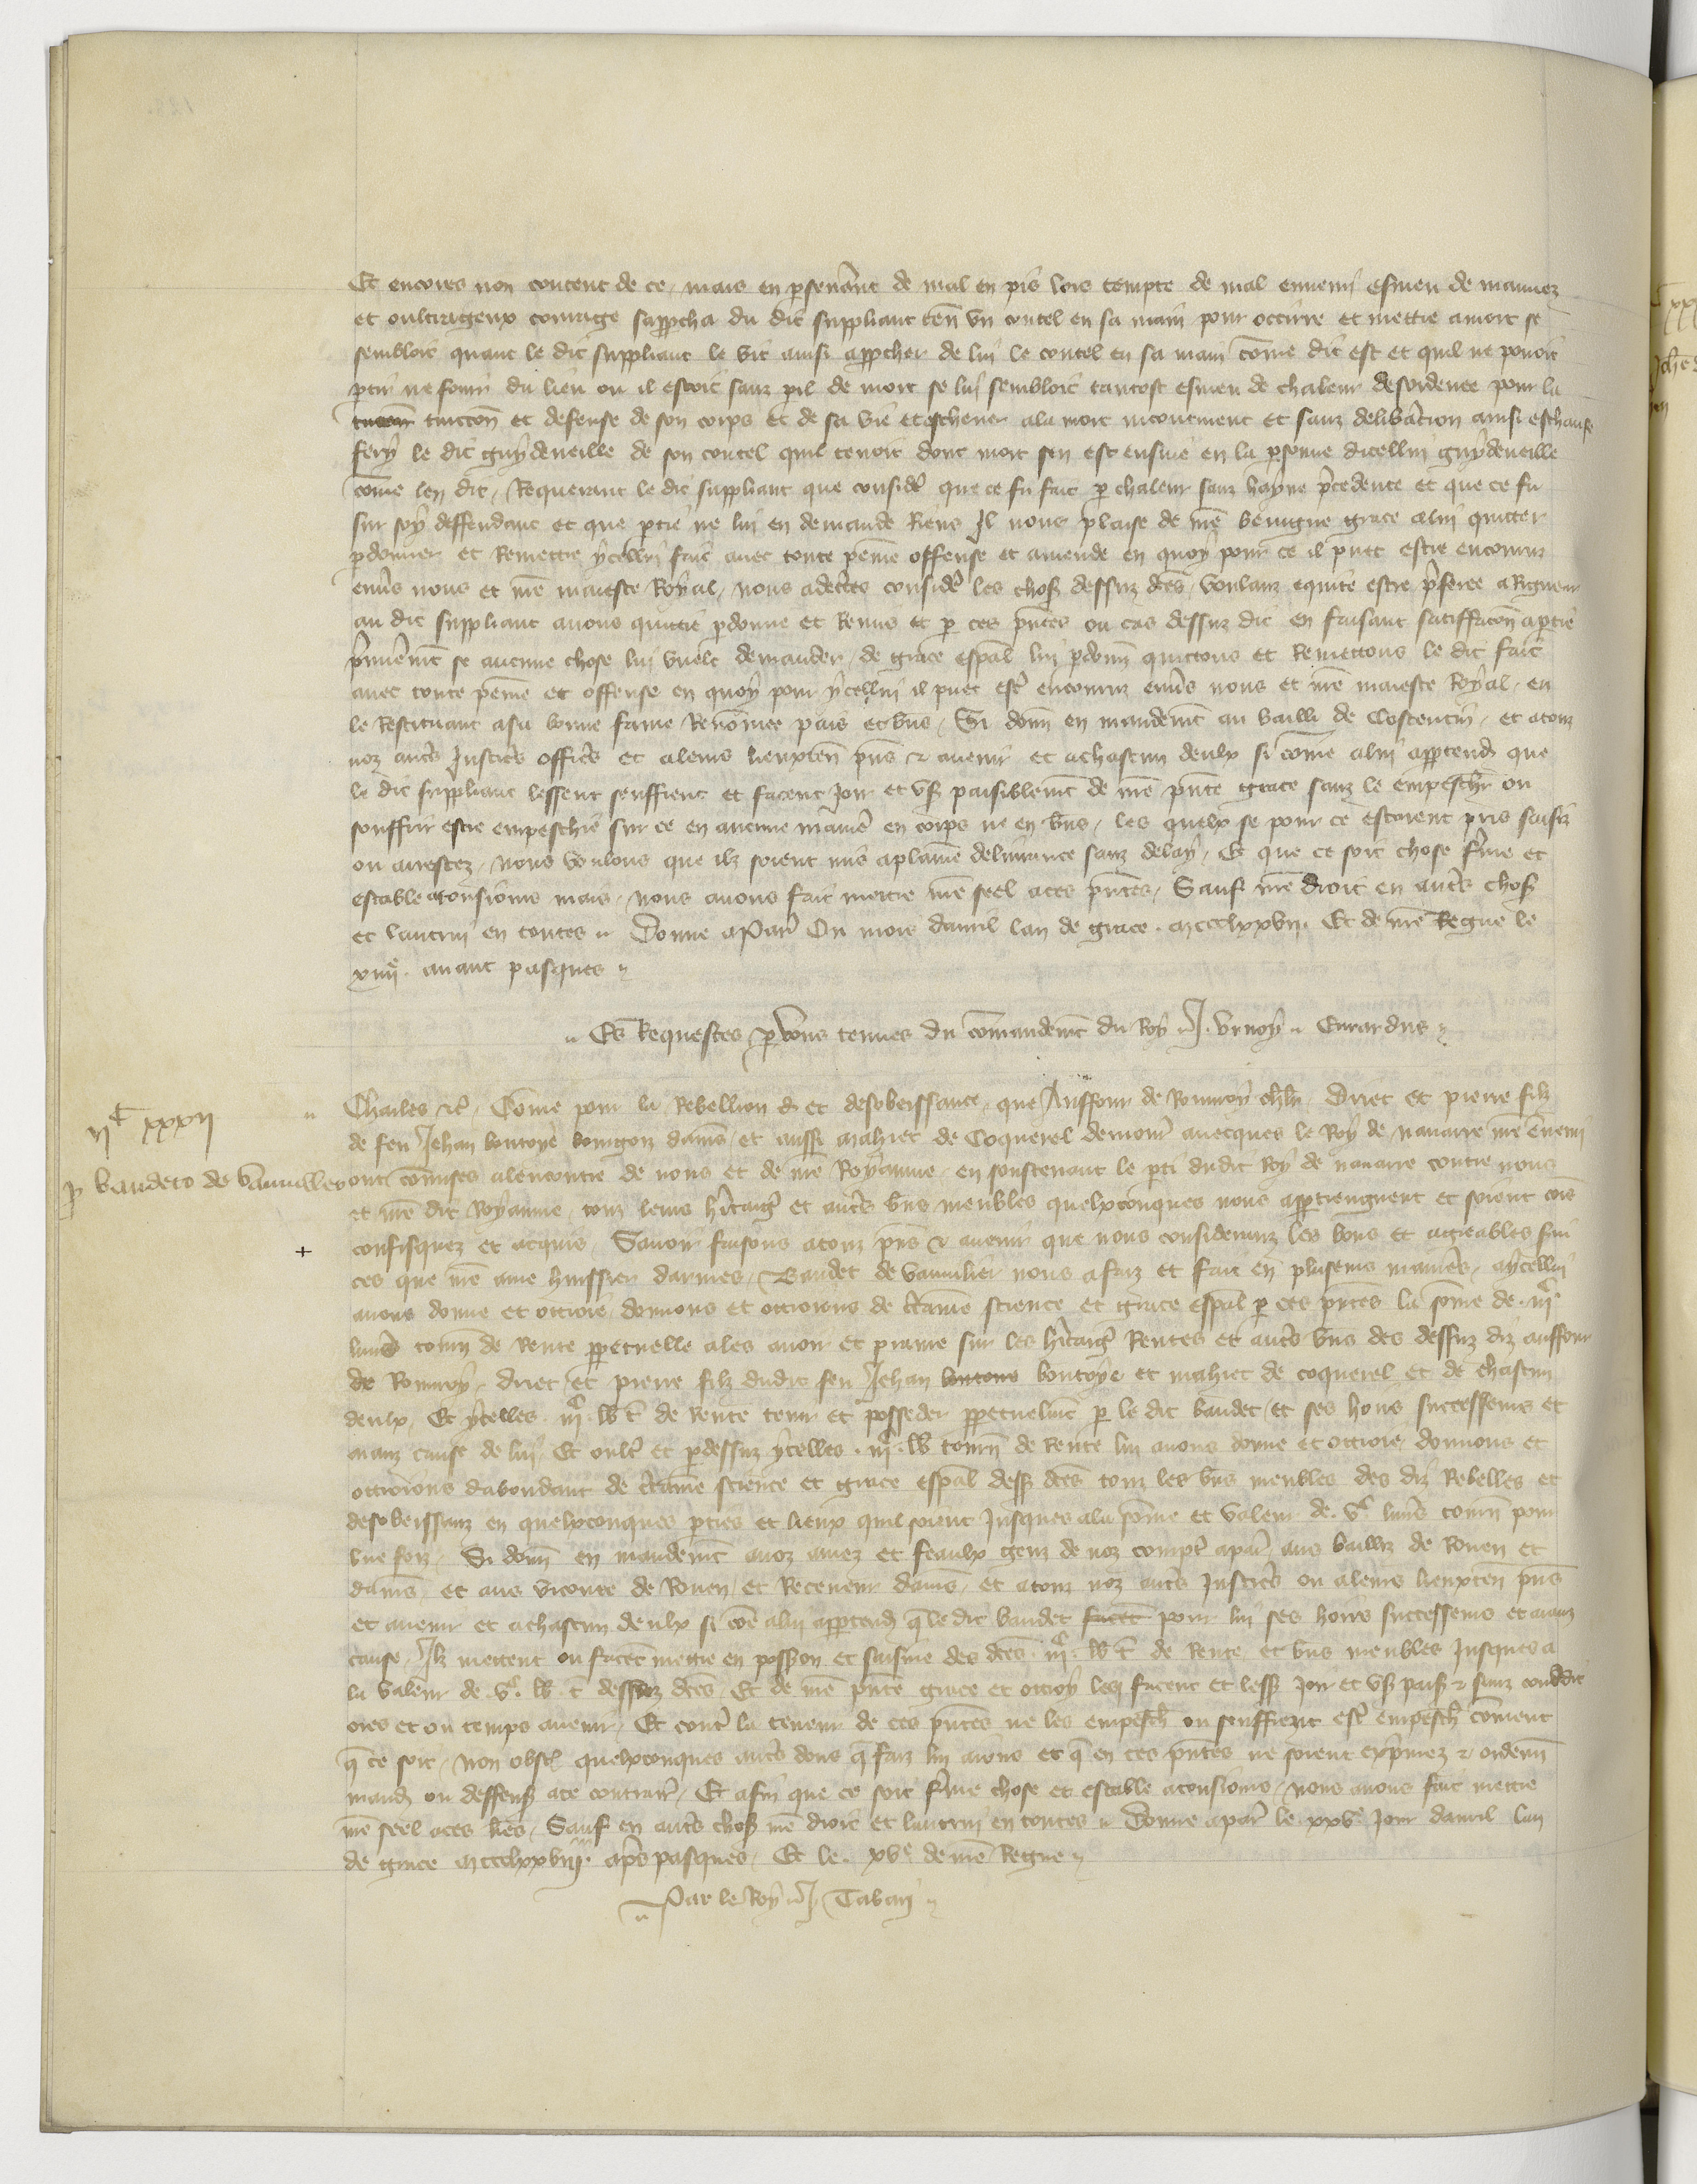 Et encores non content de ce, mais en ꝑsevāt de mal en pis lors tempte de mal ennemi esmeu de mauvez
et oultrageux courage sapꝑcha du dit suppliant teñ un coutel en sa main pour occirre et mettre a mort se
sembloit quant le dit suppliant le vit ainsi apꝑcher de lui le coutel en sa main cōme dit est et quil ne povoit
ꝑtir ne fouir du lieu ou il estoit sanz ꝑil de mort se lui sembloit tantost esmeu de chaleur desordenee pour la
tuicoñ et defense de son corps et de sa vie et eschever a la mort et sanz delibācion ainsi eschaufe
fery le dit guydeneille de son coutel quil tenoit dont mort sen est ensuie en la ꝑsonne dicellui guydeneille
cōme len dit, Requerant le dit suppliant que considē que ce fu fait ꝑ chaleur sanz hayne p̄cedente et que ce fu
sur soy deffendant et que ꝑtie ne lui en demande Riens Il nous plaise de nr̄e benigne grace a lui quitter
ꝑdonner et Remettre ycellui fait avec toute peine offense et amende en quoy pour ce il puet estre encouruz
env̄s nous et nr̄e maieste Royal, Nous adcertes considē les choses dessuz dc̄es voulanz equite estre p̄feree a Rigueur
au dit suppliant avons quittie ꝑdonne et Remis et ꝑ ces pn̄tes ou cas dessuz dit en faisant satiffacoñ a ꝑtie
p̄mierem̄t se aucune chose lui vuelt demander, de grace esp̄al lui ꝑdonñ quittons et Remettons le dit fait
avec toute peine et offense en quoy pour ycellui il puet est̄ encouruz env̄s nous et nr̄e maieste Royal, en
le Restituant a sa bonne fame Renōmee pais et biēs, Si donñ en mandem̄t au bailli de Costentin, et a touz
noz aut̄s Justic̄s offic̄s et a leurs lieuxteñ pn̄s ⁊ avenir et a chascun deulx si cōme a lui appartend̄ que
le dit suppliant lessent seuffrent et facent Joir et us̄ paisiblem̄t de nr̄e pn̄te grace sanz le empesch̄ ou
souffrir estre empeschie sur ce en aucune manīe en corps ne en biēs, les quelx se pour ce estoient pris saisiz
ou arrestez, nous voulons que ilz soient mis a plaine delivrance sanz delay, Et que ce soit chose f̄me et
estable a tousiours mais, nous avons fait mettre nr̄e seel a ces pn̄tes, Sauf nr̄e droit en aut̄s choses
et lautrui en toutes. Donne a Paris Ou mois davril lan de grace. mccclxxvii. Et de nr̄e Regne le
xiiii.e avant pasques
Es Requestes ꝑ vous tenues du cōmandem̄t du Roy. J. vrnoy. Evrardus
iic xxxii
Charles ⁊c̄, Cōme pour la Rebellion et desobeissance, que Auffour de Rouvroy ch̄lr, Druet et pierre filz
de feu Jehan boutoye bourgois damiēs, et aussi Mahiet de Coquerel demour̄ avecques le Roy de navarre nr̄e ēnemi
ꝑ baudeto de vauvill̄ier
ont cōmises a lencontre de nous et de nr̄e Royaume, en soustenant le ꝑti dudit Roy de navarre contre nous
et nr̄e dit Royaume, touz leurs h̄itaiḡ et aut̄s biēs meubles quelxconques nous appartiengnent et soient
confisquez et acquis, Savoir faisons a touz pn̄s ⁊ avenir que nous consideranz les bons et agreables ser
+
ces que nr̄e ame huissier darmes, Baudet de vauvilier nous a faiz et fait en plusieurs manīes, a ycellui
avons donne et ottroie donnons et ottroions de c̄taine science et grace esp̄al ꝑ ces pn̄tes la sōme de. iiic
livrēs tourn̄ de Rente ꝑpetuelle a les avoir et prenre sur les h̄itaiḡ Rentes et aut̄s biēs des dessuz diz auffour
de Rouvroy, druet et pierre filz dudit feu Jehan boutoye et mahiet de coquerel et de chascun
deulx, Et ycelles. iiic. lb t̄ de Rente tenir et posseder ꝑpetuelm̄t ꝑ le dit baudet, et ses hoirs successeurs et
aianz cause de lui, Et oult̄ et ꝑdessuz ycelles. iiic. lb tourn̄ de Rente lui avons donne et ottroie, donnons et
ottroions dabondant de c̄taine science et grace esp̄al dess̄ dc̄es touz les biēs meubles des diz Rebelles et
desobeissanz en quelxconques ꝑties et lieux quil soient Jusques a la sōme et valeur de. vc livrēs tourn̄ pour
une foiz, Si donñ en mandem̄t a noz amez et feaulx genz de noz compt̄ a paris, aus bailliz de Rouen et
damiēs, et aus viconte de Rouen, et Receveur damiēs, et a touz noz aut̄s Justic̄s ou a leurs lieuxteñ pn̄s
et avenir et a chascun deulx si cōe a lui appartend̄ q̄ le dit baudet pour lui ses hoirs successeurs et aianz
cause, Ilz mettent ou facēt mettre en possessīon et saisine des dc̄es. iiic. lb t̄ de Rente, et biēs meubles Jusques a
la valeur de. vc. lb t̄ dessuz dc̄es, Et de nr̄e pn̄te grace et ottroy les facent et less̄ Joir et us̄ pais̄ ⁊ sanz contredit
ores et ou temps avenir, Et cont̄ la teneur de ces pn̄tes ne les empesch̄ ou seuffrent est̄ empesch̄ cōment
q̄ ce soit, non obst̄ quelxconques aut̄s dons q̄ faiz lui aions et q̄ en ces pn̄tes ne soient exp̄mez ⁊ ordenñ
mand̄ ou deffens̄ a ce contraīr, Et afin que ce soit f̄me chose et estable a tousiours, nous avons fait mettre
nr̄e seel a ces lr̄es, Sauf en aut̄s choses nr̄e droit et lautrui en toutes. Donne a paris le. xxve Jour davril lan
de grace mccclxxviii. ap̄s pasques, Et le. xve. de nr̄e Regne
Par le Roy. J. Tabari